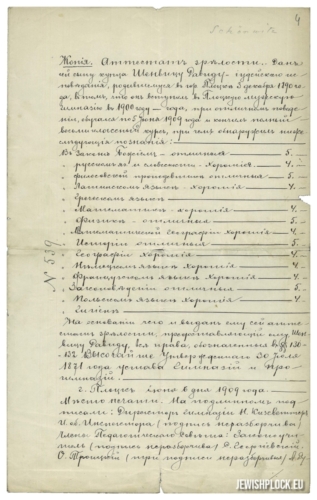 4
Schönwitz
Копiя. Аттестатъ зрѣлости. Данъ
сей сыну купца Шенвицу Давиду – iудейскаго ис-
повѣданiя, родившемуся въ гор. Плоцкѣ 5 декабря 1890 го-
да, въ томъ, что онъ вступивъ въ Плоцкую мужскую
гимназiю въ 1900 году – , при отличномъ поведе-
нiи, обучался по 5 Iюня 1909 года и кончилъ полный
восьмиклассный курсъ, при чемъ обнаружилъ ниже-
слѣдующiя познанiя:
Въ Законѣ Божiемъ – отличныя – 5.
" русскомъ яз. и словесности – хорошiя – 4.
" философской пропедевтикѣ отличныя – 5.
" Латинскомъ языкѣ хорошiя – 4.
" Греческомъ языкѣ
" Математикѣ – хорошiя – 4.
" Физикѣ – отличныя – 5.
" Математической Географiи хорошiя – 4.
" Исторiи отличныя – 5.
" Географiи хорошiя – 4.
" Нѣмецкомъ языкѣ хорошiя – 4.
" Французскомъ языкѣ хорошiя – 4.
" Законовѣденiи отличныя – 5.
" Польскомъ языкѣ хорошiя – 4.
" Гигiенѣ
№ 559
На основанiи чего и выданъ ему сей аттес-
татъ зрѣлости, предоставляющiй ему, Шен-
вицу Давиду, всѣ права, обозначенныя въ §§ 130-
132 ВЫСОЧАЙШЕ утвержденнаго 30 Iюля
1871 года устава Гимназiй и Про-
гимназiй.
г. Плоцкъ Iюня 6 дня 1909 года.
Мѣсто печати. На подлинномъ под-
писали: Директоръ Гимназiи
И. об. Инспектора (подпись неразборчива)
Члены Педагогическаго Совѣта: Законоучи-
тель (подпись неразборчива)
О. Троицкiй (при подписи неразборчиво)
JEWISHPLOCK.EU